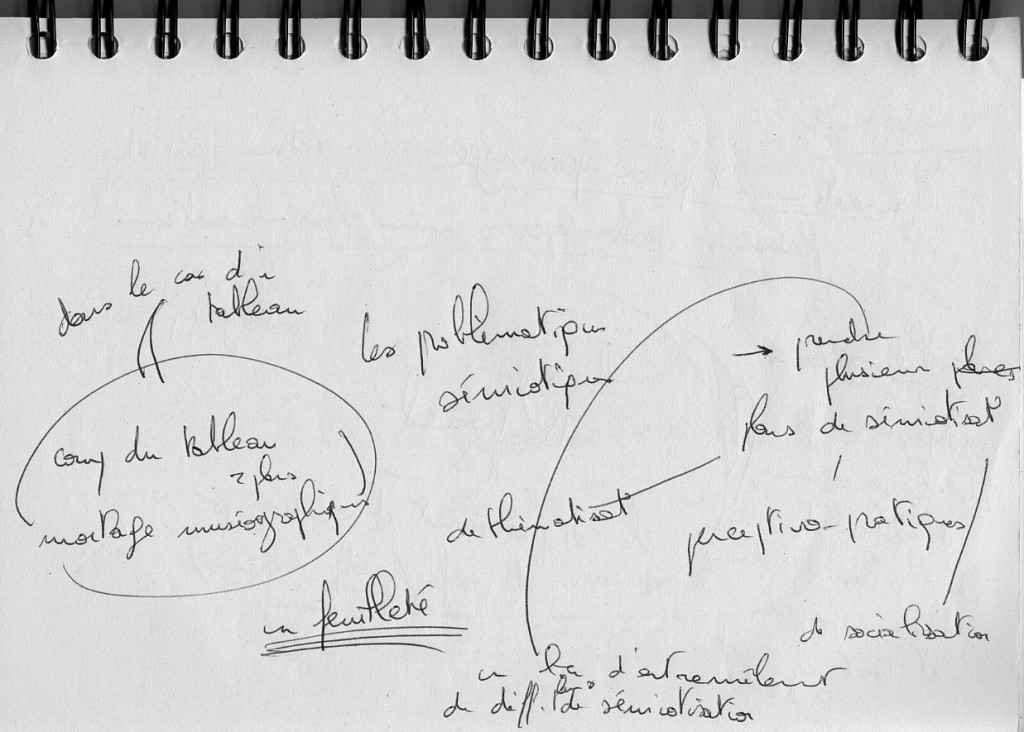 dans le cas d'1
tableau
les problématiques
sémiotiques
→ prendre
plusieurs
plans de sémiotisat°
du tableau
2 plans
montage muséographique
de thématisat°
perceptivo-pratiques
un feuilleté
de socialisation
un d'entremêlement
de diff. plans de sémiotisation